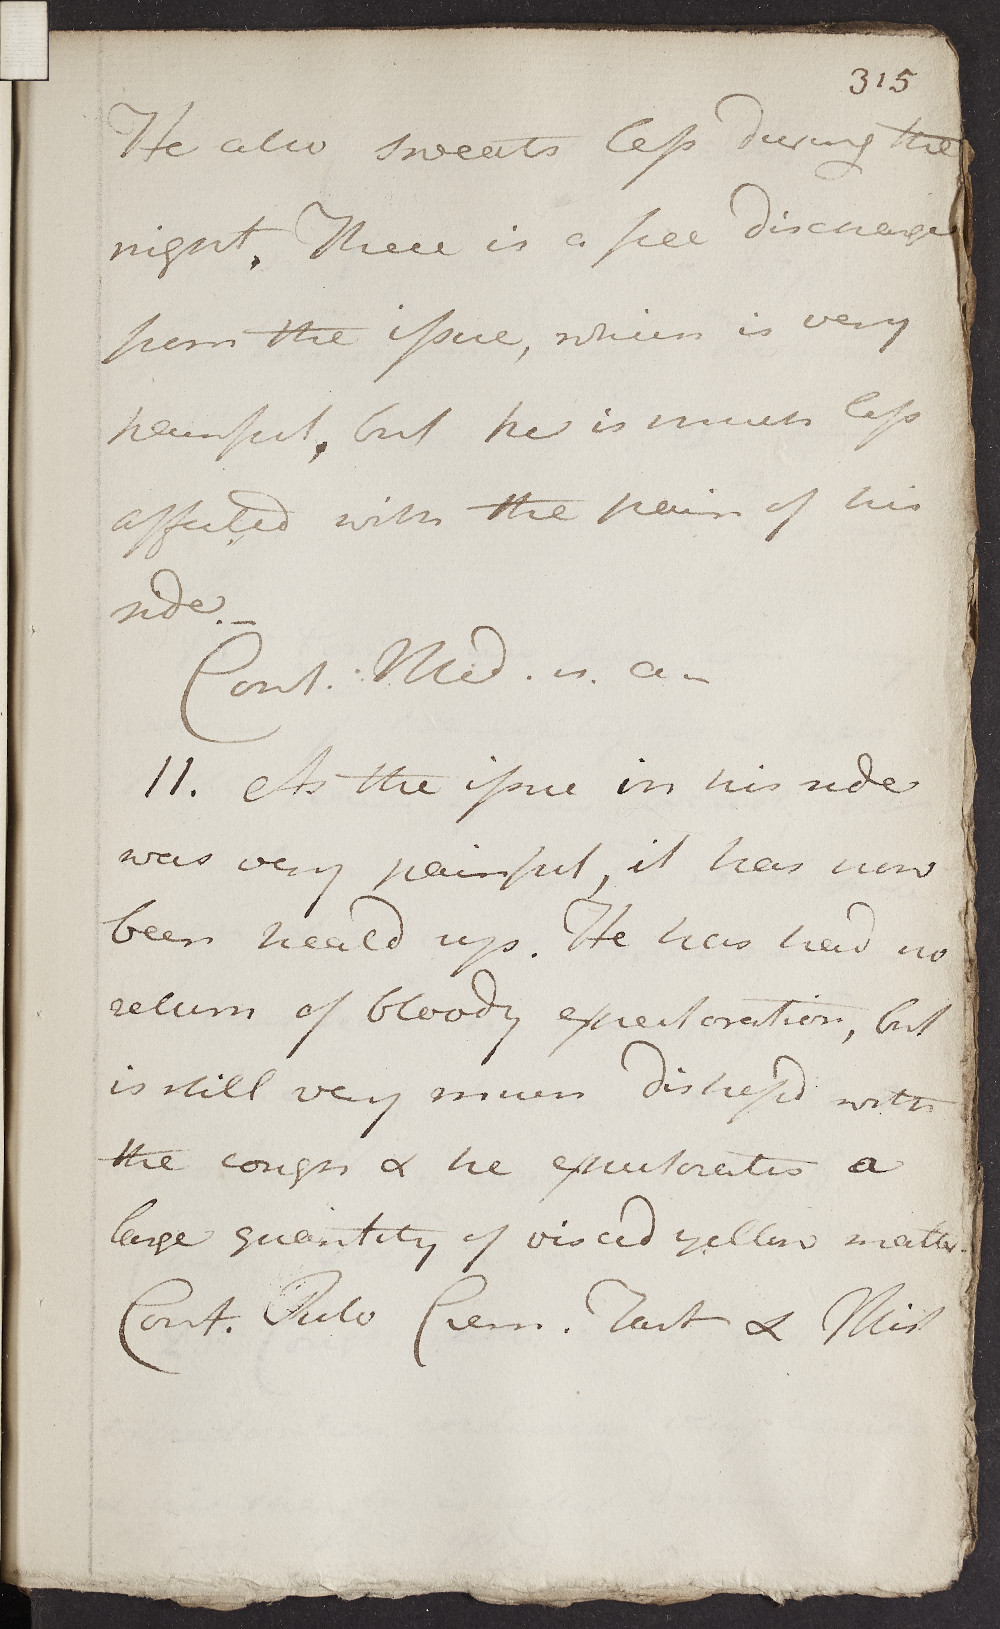 315
He also sweats less during the
night. There is a free discharge
from the issue, which is very
painful, but he is much less
affected with the pain of his
side._
Cont. Med. u. a_
11. As the issue in his side
was very painful, it has now
been heald up. He has had no
return of bloody expectoration, but
is still very much distressd with
the cough & he expectorates a
large quantity of viscid yellow matter.
Cont. Pulv Crem. Tart & Mist